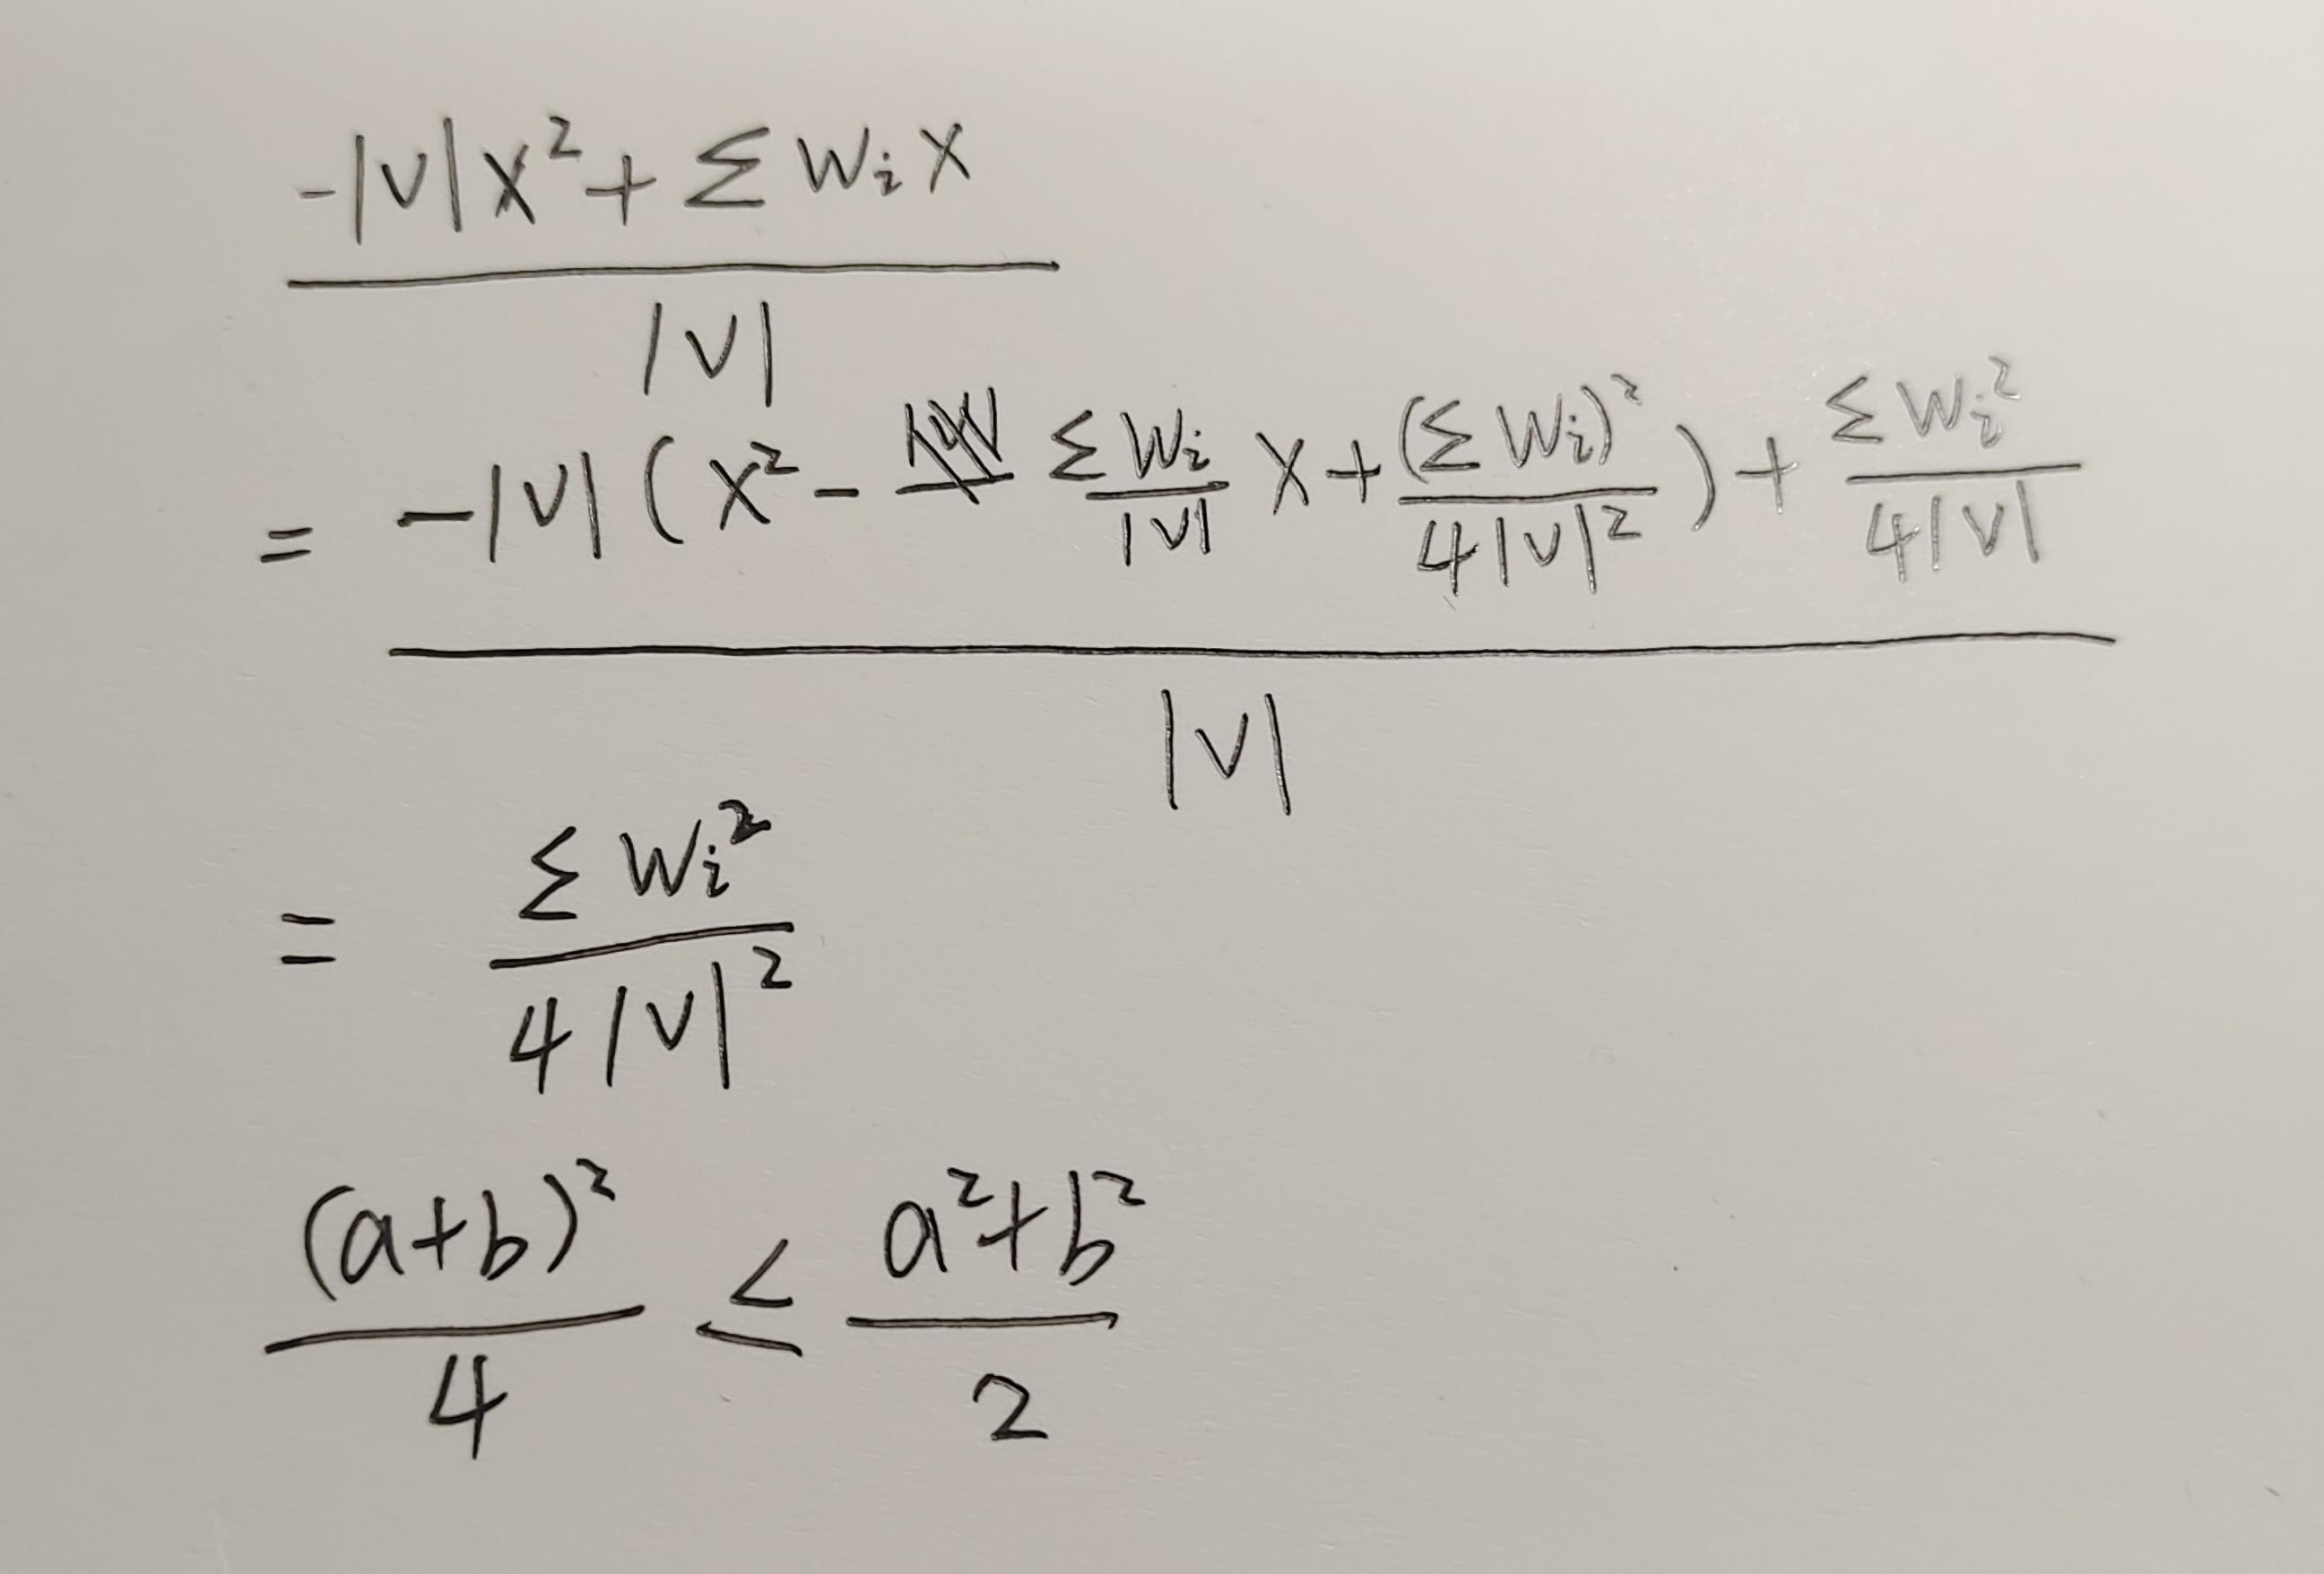 -|V|x² + Σ Wᵢ x
|V|
= -|V| ( x² - Σ Wᵢ/|V| x + (Σ Wᵢ)²/4|V|² ) + Σ Wᵢ²/4|V|
|V|
= Σ Wᵢ²/4|V|²
(a+b)²/4 ≤ a²+b²/2